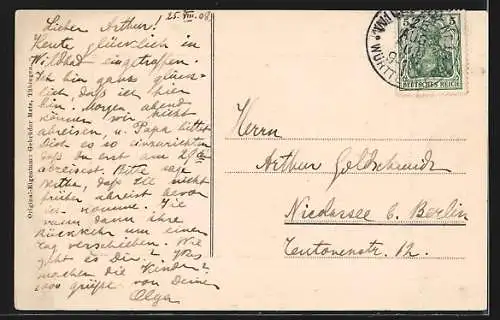 25. VIII. 08.
Lieber Arthur!
Heute glücklich in
Wildbad eingetroffen.
Ich bin ganz glück-
lich, daß ich hier
bin. Morgen abend
können wir nicht
abreisen, u. Papa bittet
Dich es so einzurichten
daß du erst am
abreisest. Bitte sage
Hertha, daß Ell nicht
früher abreist bevor
ich komme. Sie
kann dann ihre
Rückkehr um einen
Tag verschieben. Wie
geht es Dir? Was
machen die Kinder?
1000 Grüße von Deiner
Olga
Original-Eigentum: Gebrüder Metz, Tübingen.
5
DEUTSCHES REICH
Herrn
Arthur Goldschmidt
Nicolassee b. Berlin
Teutonenstr. 12.